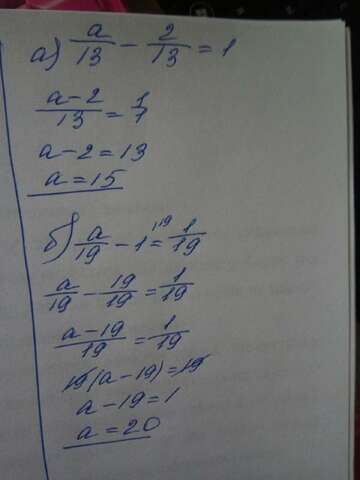 а) a/13 - 2/13 = 1
a-2/13 = 1/1
a-2=13
a=15
б) a/19 - 1 = 1/19
a/19 - 19/19 = 1/19
a-19/19 = 1/19
19(a-19)=19
a-19=1
a=20